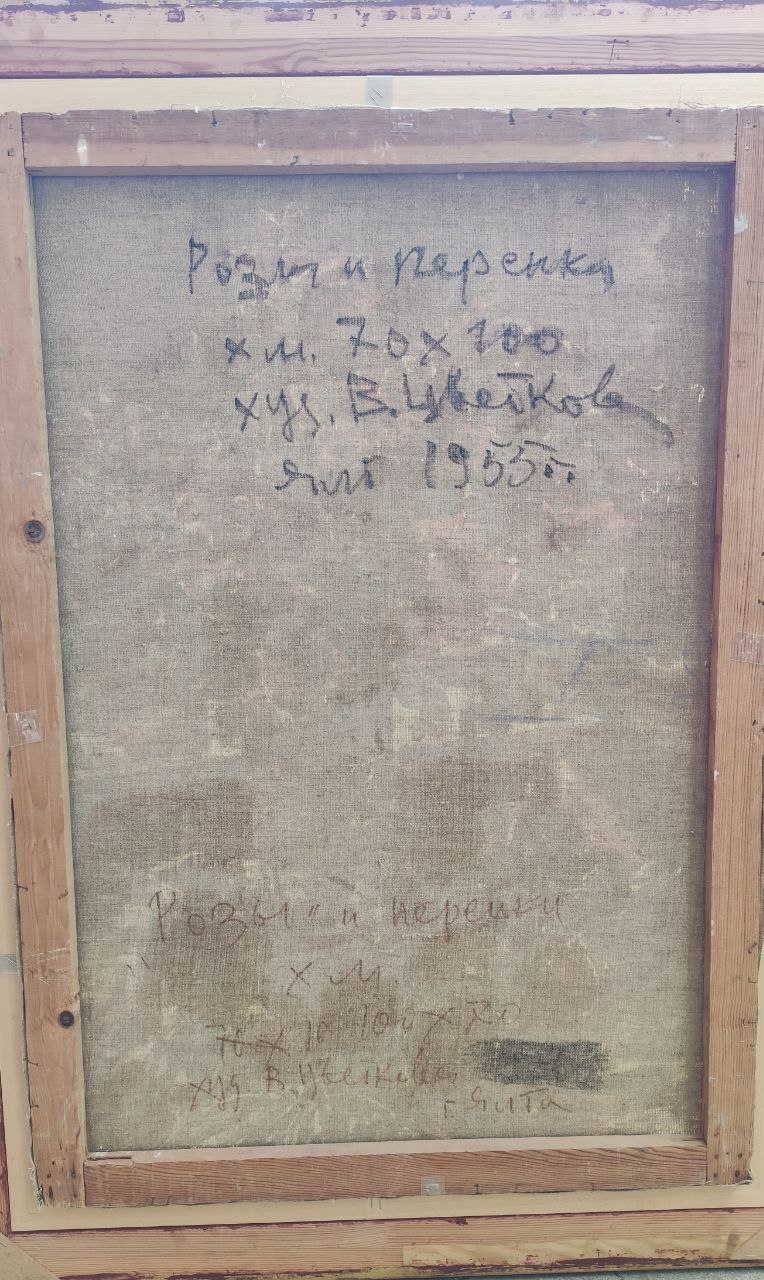 Розы и персики
х.м. 70х100
худ. В. Цветкова
Ялт 1955 г.
"Розы" и персики
х.м.
70 х 70 100 х 70
худ. В. Цветкова
г. Ялта